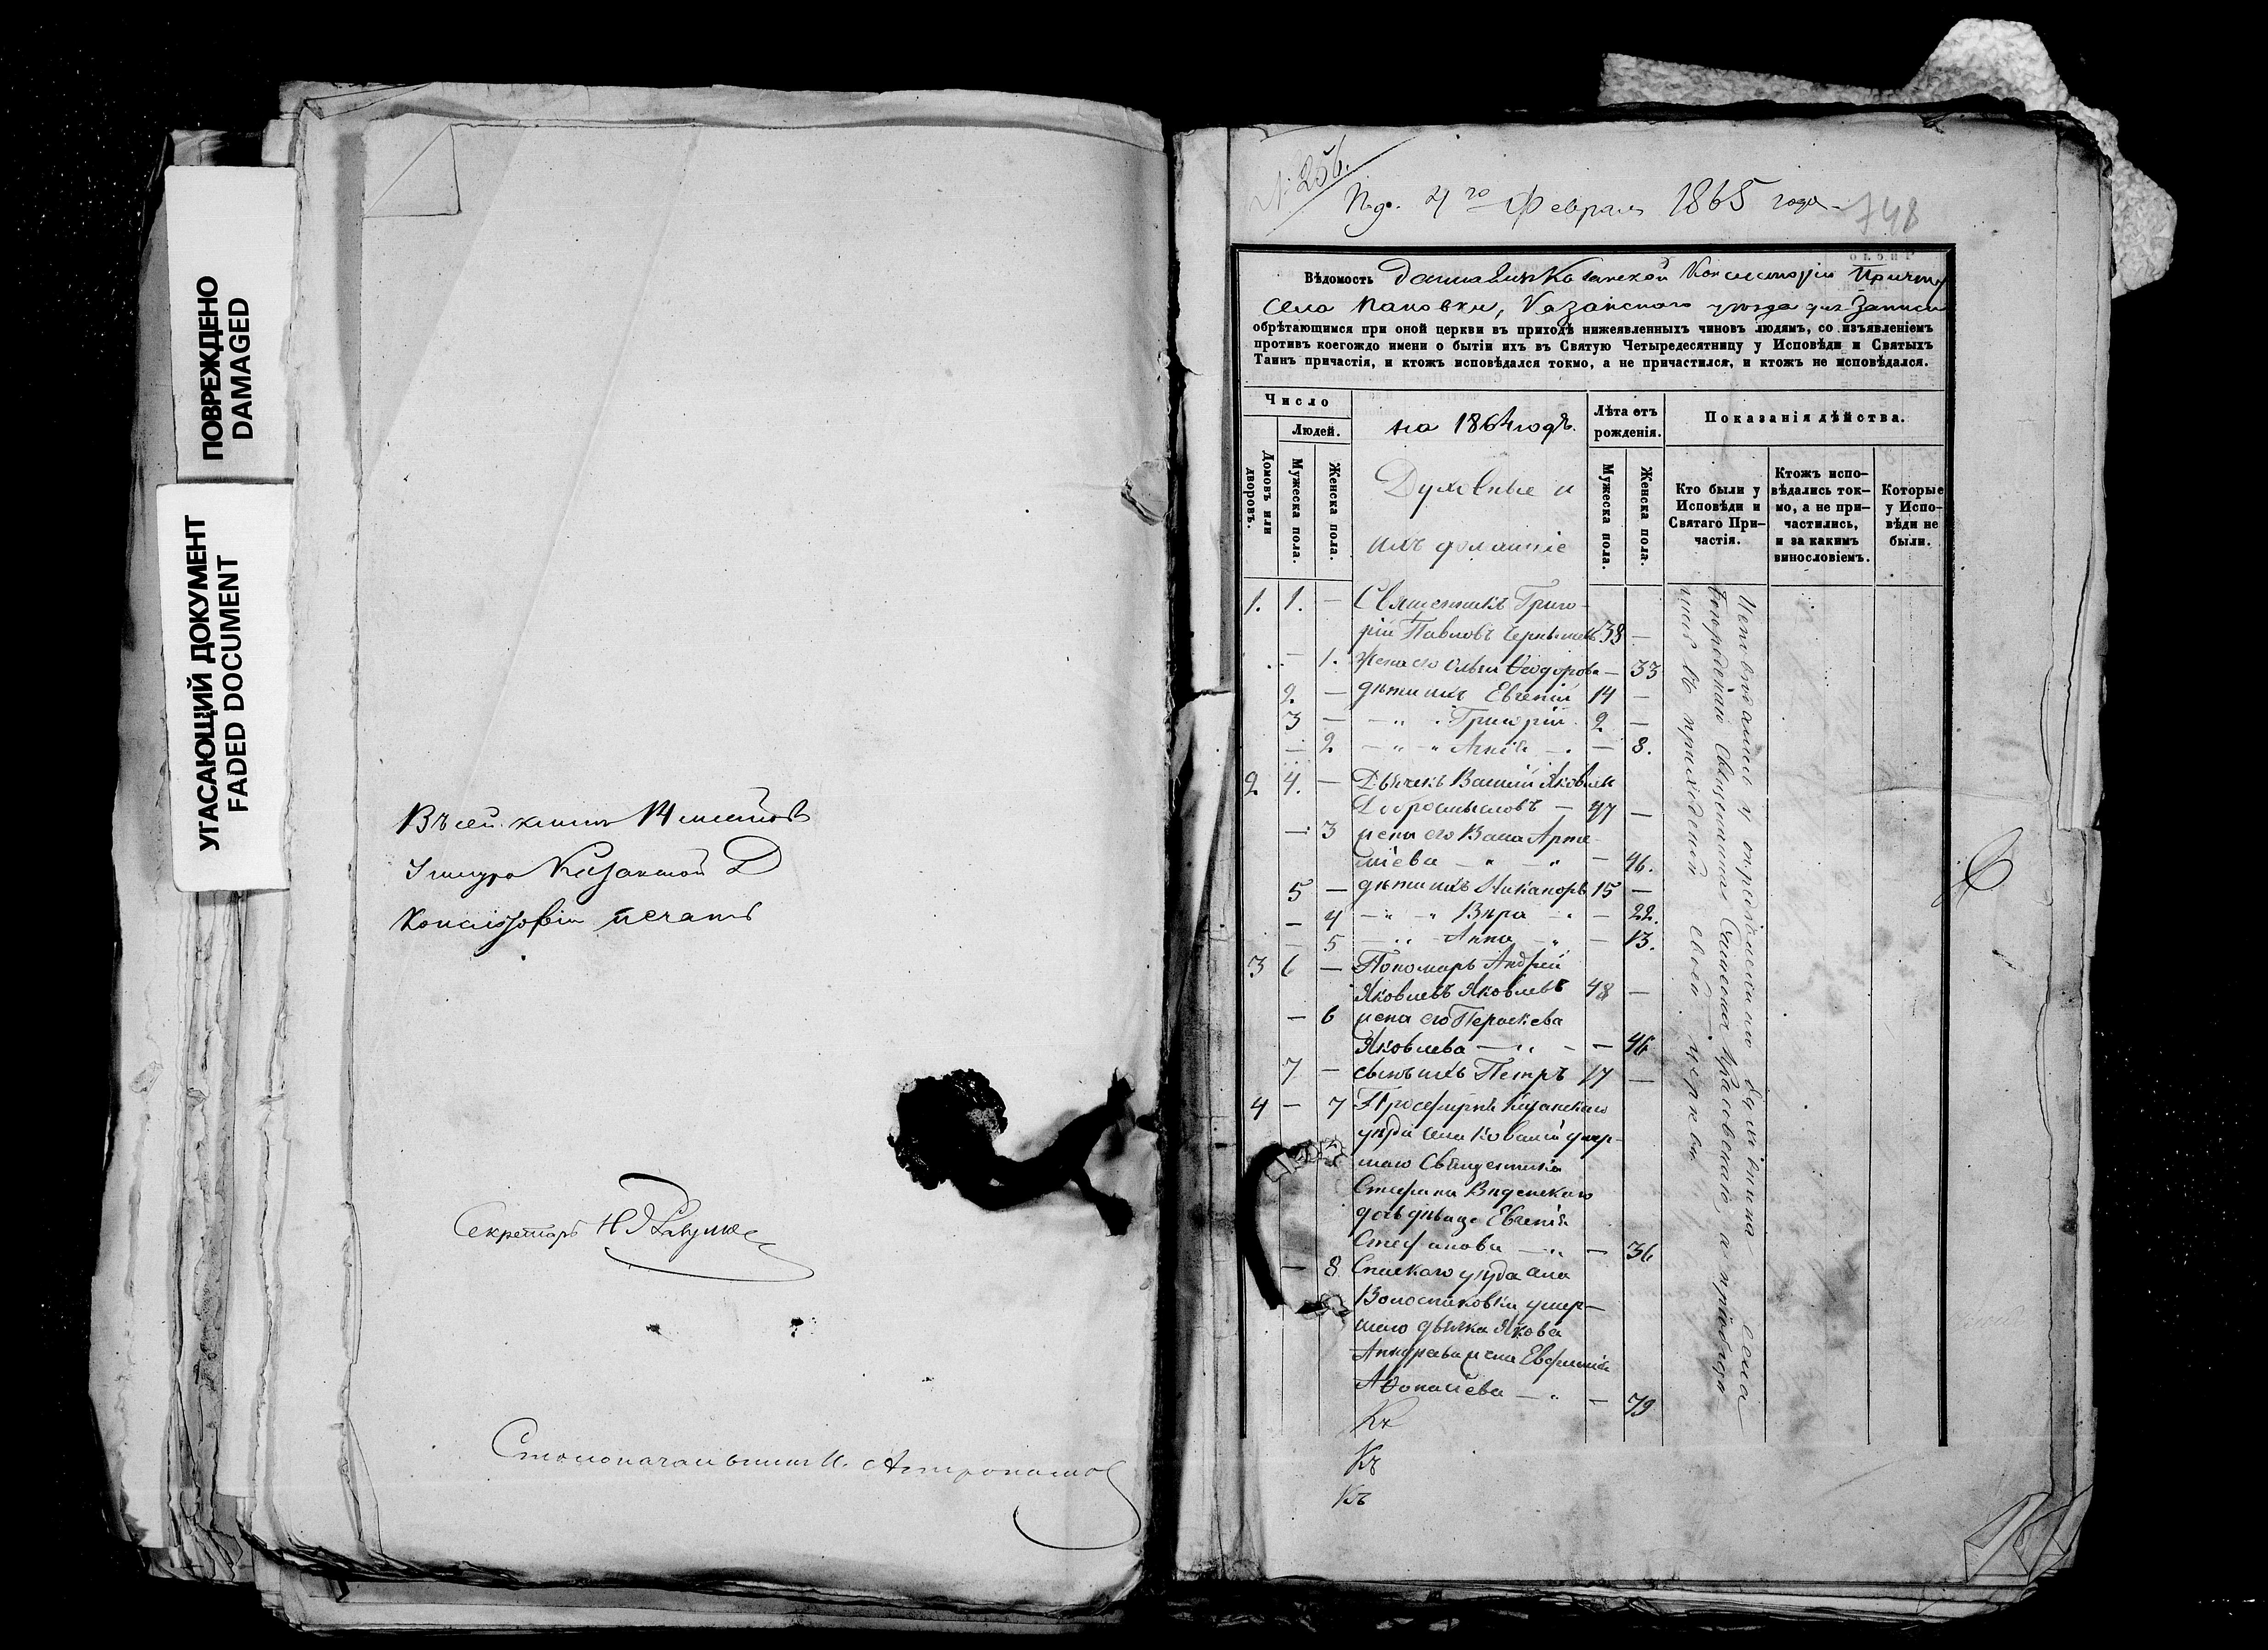 ПОВРЕЖДЕНО
DAMAGED
УГАСАЮЩИЙ ДОКУМЕНТ
FADED DOCUMENT
Въ сей книгѣ 14 листовъ
Казанской Д
Консисторіи печать
Секретарь
Столоначальникъ И.
№ 256.
Под. 4 го Февраля 1865 года
748
Вѣдомость данная изъ Казанской Консисторіи Причту
села Пановки, Казанскаго уѣзда для Записи
обрѣтающимся при оной церкви въ приходѣ нижеявленныхъ чиновъ людямъ, со изъявленіемъ
противъ коегождо имени о бытіи ихъ въ Святую Четыредесятницу у Исповѣди и Святыхъ
Таинъ причастія, и ктожъ исповѣдался токмо, а не причастился, и ктожъ не исповѣдался.
Число
Людей.
Домовъ или дворовъ.
Мужеска пола.
Женска пола.
на 1864 годъ.
Духовные и
ихъ домашніе
Лѣта отъ рожденія.
Мужеска пола.
Женска пола.
Показанія дѣйства.
Кто были у Исповѣди и Святаго При-частія.
Ктожъ испо-вѣдались ток-мо, а не при-частились, и за какимъ винословіемъ.
Которые у Испо-вѣди не были.
1. 1. — Священникъ Григо-
рій Павловъ 38 —
— 1. Жена его Ольга Ѳеодорова — 33
2. — дѣти ихъ Евгеній 14 —
3 — — „ Григорій 2 —
— 2. — „ — „ Агнія — 8.
2 4. — Дьячекъ Василій Яковлевъ
Добросмысловъ — 47 —
— 3 жена его Васса Арте-
міева — „ — „ — 46.
5 — дѣти ихъ Никаноръ 15 —
— 4 — „ — „ Вѣра — 22.
— 5 — „ Анна — „ — 13.
3 6 — Пономарь Андрей
Яковлевъ Яковлевъ 48 —
— 6 жена его Параскева
Яковлева — „ — 46
7 — сынъ ихъ Петръ 17 —
4 — 7 Просфирня Казанскаго
уѣзда села Ковалей умер-
шаго Священника
Стефана Введенскаго
дочь дѣвица Евгенія
Стефанова — „ — 36
— 8 Спаскаго уѣзда села
Волостниковки умер-
шаго дьячка Якова
Андреева жена Евфимія
Афонасіева — „ — 79
Исповѣдались у
Священника
въ приходской своей церкви.